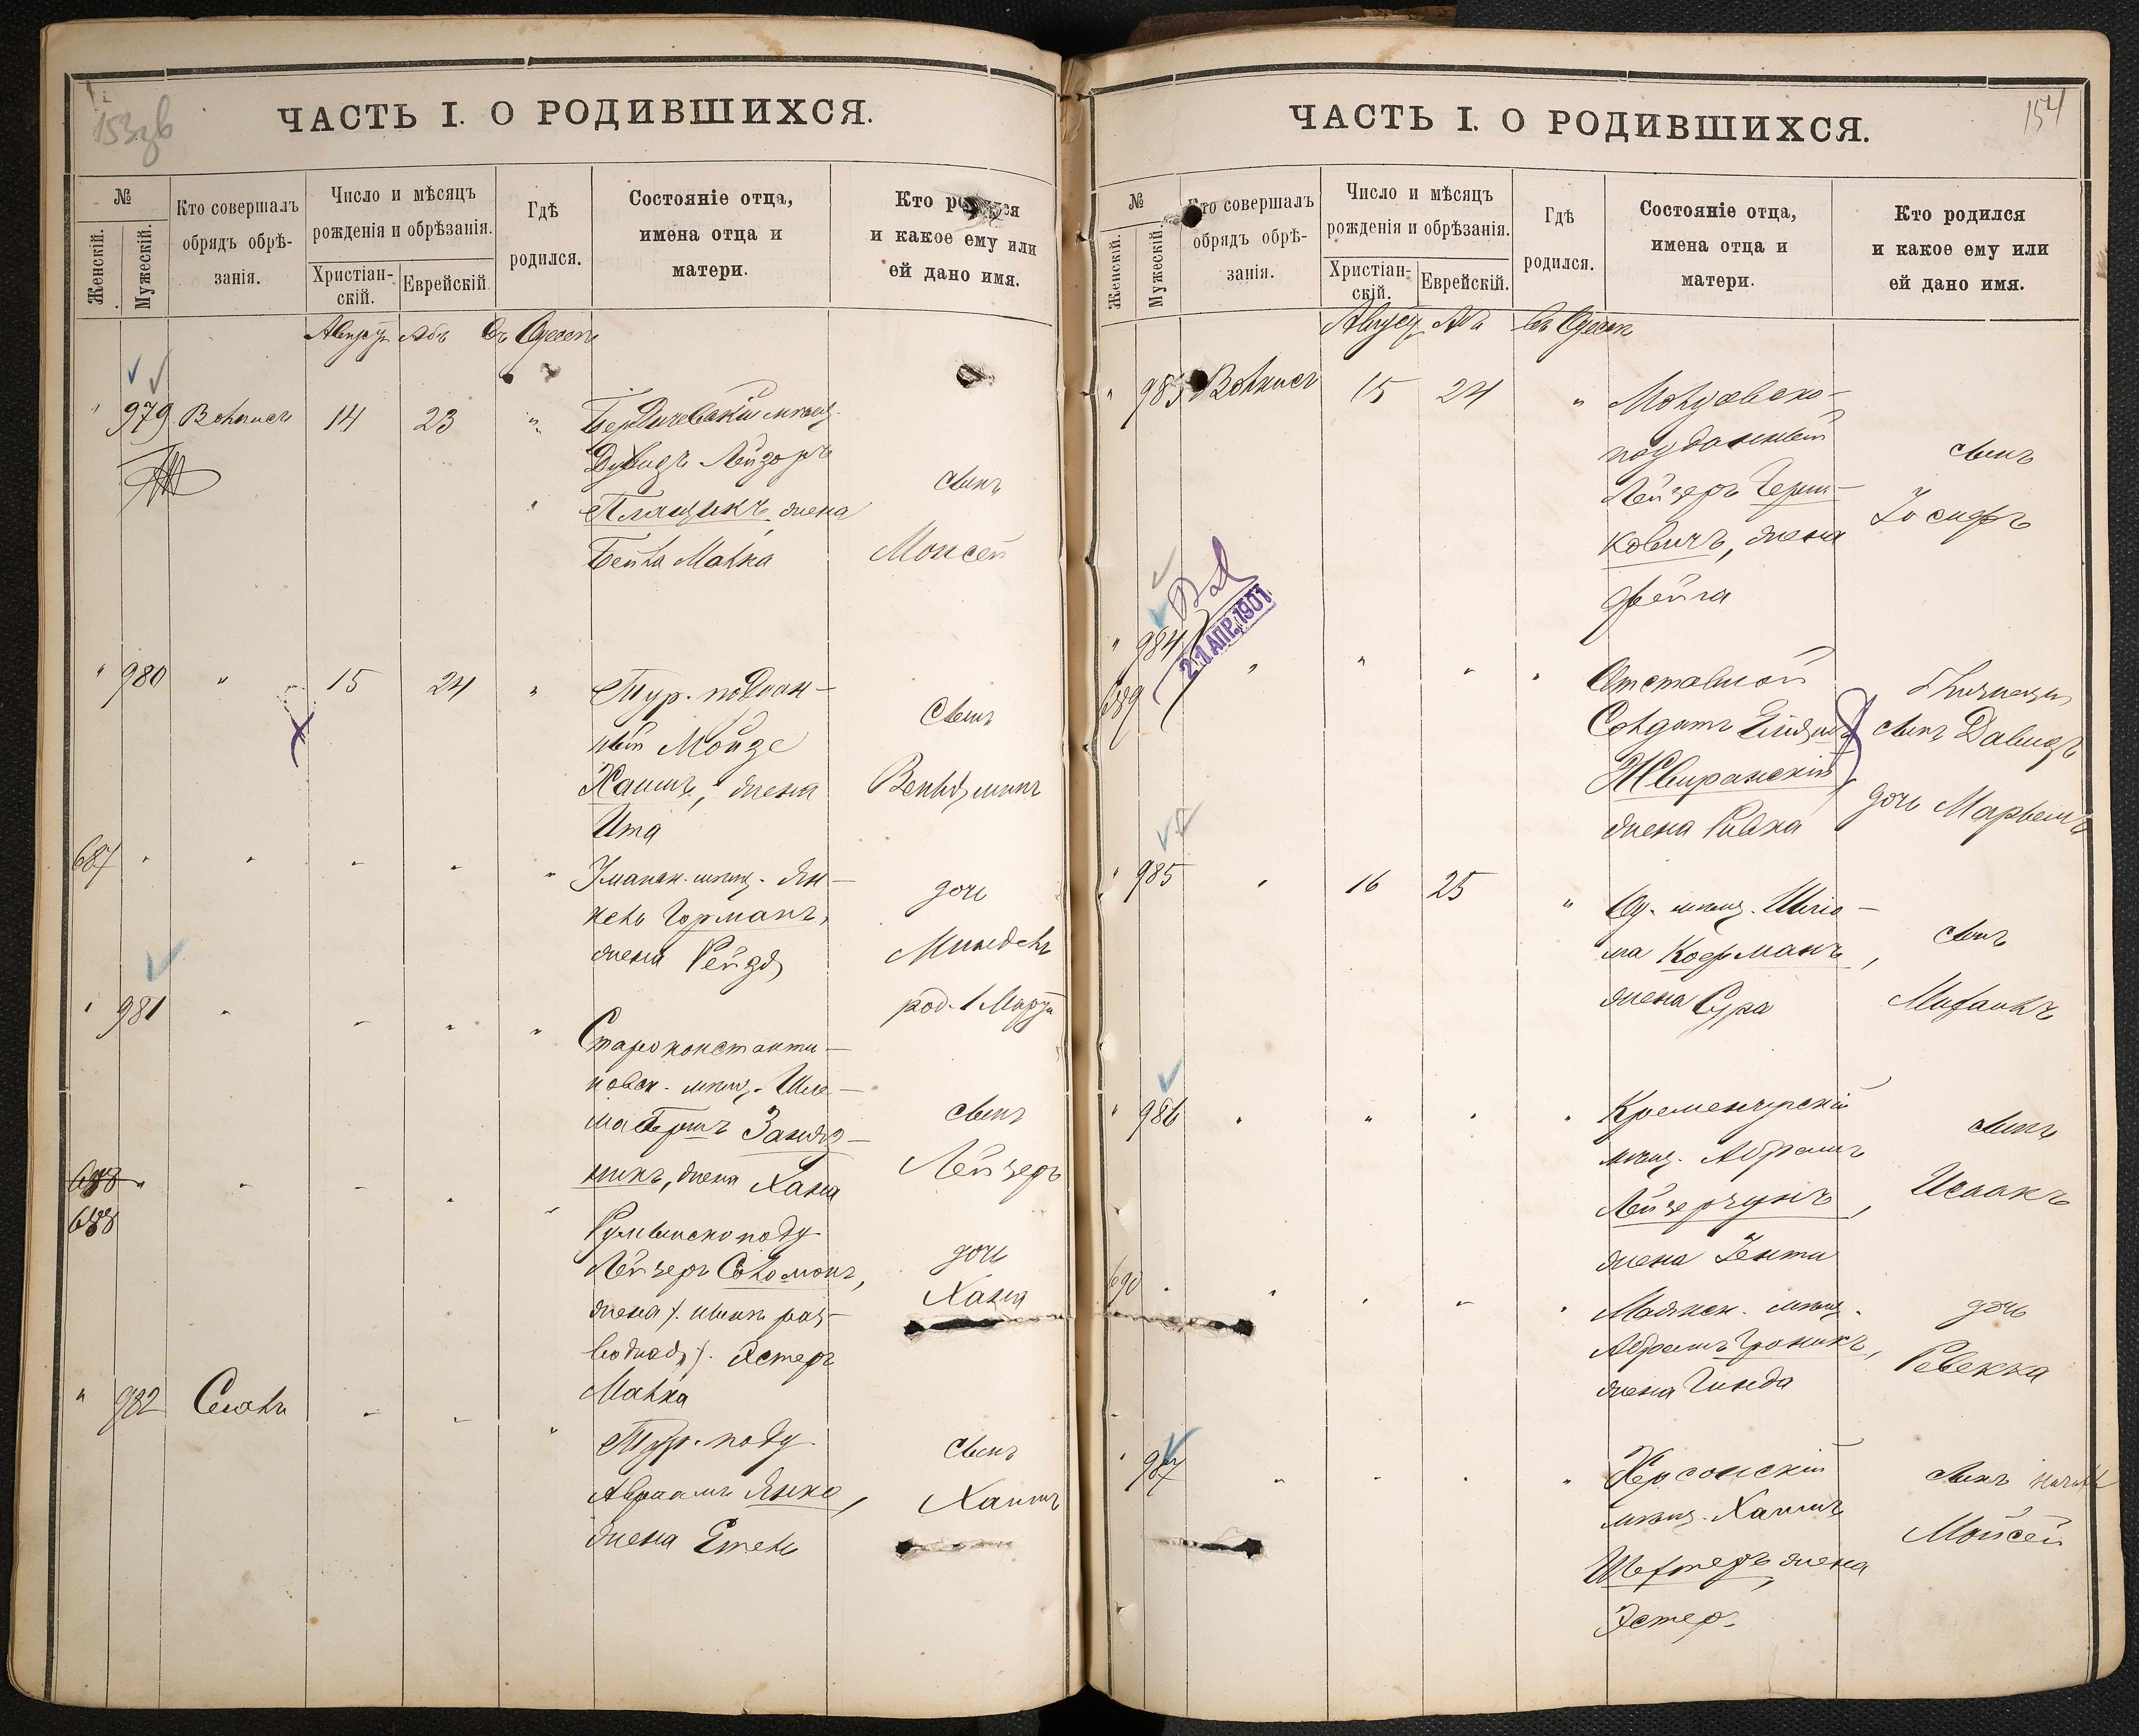 153зв
ЧАСТЬ I. О РОДИВШИХСЯ.
№
Женскій.
Мужескій.
Кто совершалъ
обрядъ обрѣ-
занія.
Число и мѣсяцъ
рожденія и обрѣзанія.
Христіан-
скій.
Еврейскій.
Гдѣ
родился.
Состояніе отца,
имена отца и
матери.
Кто
и какое ему или
ей дано имя.
Августъ Абъ Въ Одессѣ
" 979 14 23 " Бердичевскій мѣщ.
Дувидъ Лейзоръ
Плащикъ жена
Бейла Малка
сынъ
Моисей
" 980 " 15 24 " Тур. поддан-
ный
Хаимъ, жена
Ита
сынъ
Веньяминъ
687 " " " " " мѣщ. Ян-
кель Горманъ,
жена Рейзя
дочь
Миндель
род. 1 Марта
" 981 " " " " Староконстанти-
новск. мѣщ. Шле-
ма Бершъ Зандз-
жена Хана
сынъ
Лейзеръ
688 " " " "
688
Румынско подд.
Лейзеръ Соломонъ,
жена
Эстеръ
Малка
дочь
Хана
" 982 " " " Тур. подд.
Авраамъ Янко,
жена Етель
сынъ
Хаимъ
154
ЧАСТЬ I. О РОДИВШИХСЯ.
№
Женскій.
Мужескій.
Кто совершалъ
обрядъ обрѣ-
занія.
Число и мѣсяцъ
рожденія и обрѣзанія.
Христіан-
скій.
Еврейскій.
Гдѣ
родился.
Состояніе отца,
имена отца и
матери.
Кто родился
и какое ему или
ей дано имя.
Августъ Абъ Въ Одессѣ
" 983 15 24 " Молдавско-
подданный
Лейзеръ Герш-
ковичъ, жена
Фейга
сынъ
Іосифъ
21 АПР. 1901
" 984 " " " " Отставной
689
Солдатъ
Жвиранскій
жена Ривка
Близнецы
сынъ Давидъ
дочь Марьемъ
" 985 " 16 25 " Од. мѣщ. Шлio-
ма Кофманъ,
жена Сура
сынъ
Михаилъ
" 986 " " " " Кременчугскій
мѣщ. Абрамъ
Лейзерзунъ,
жена Зенти
сынъ
Исаакъ
690 " " " " " Маякск. мѣщ.
Абрамъ Гроникъ,
жена Гинда
дочь
Ревекка
" 987 " " " " Херсонскій
мѣщ. Хаимъ
Шехтеръ, жена
Эстер.
сынъ
Мойсей